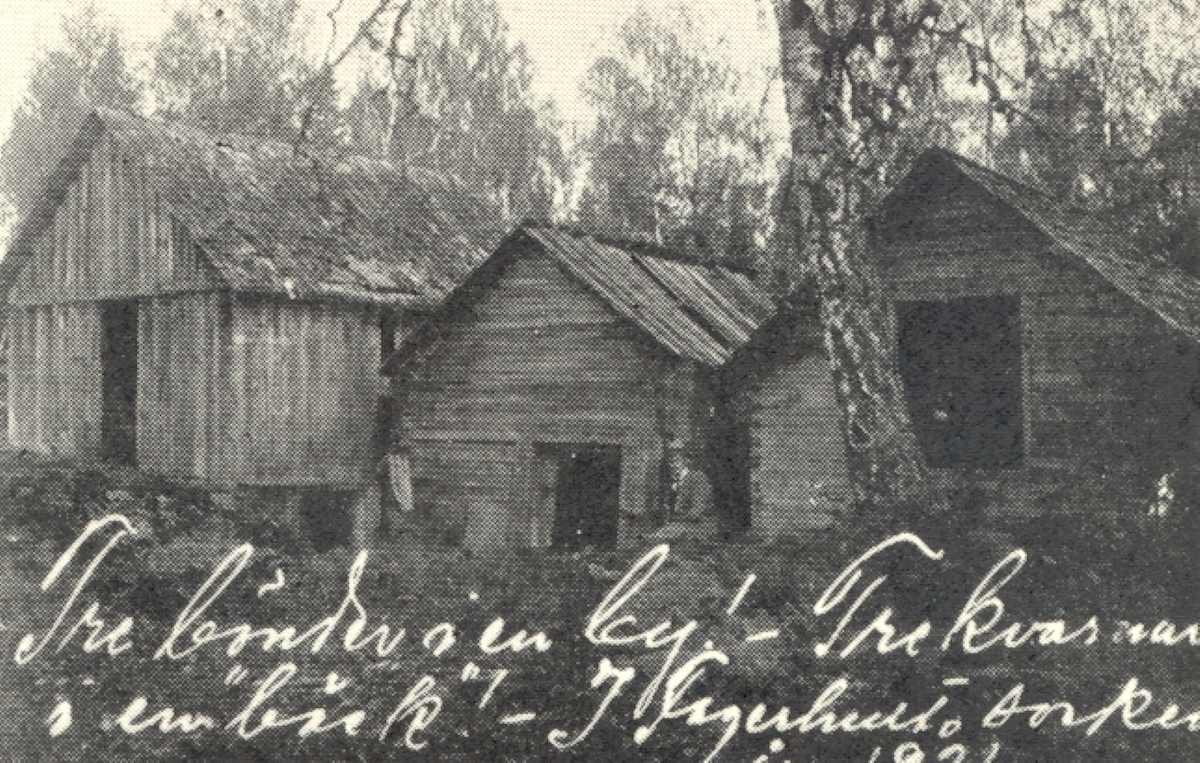 Tre bönder i en by! – Tre kvarnar
i en "bäck"! – I Fagerhults socken
1921